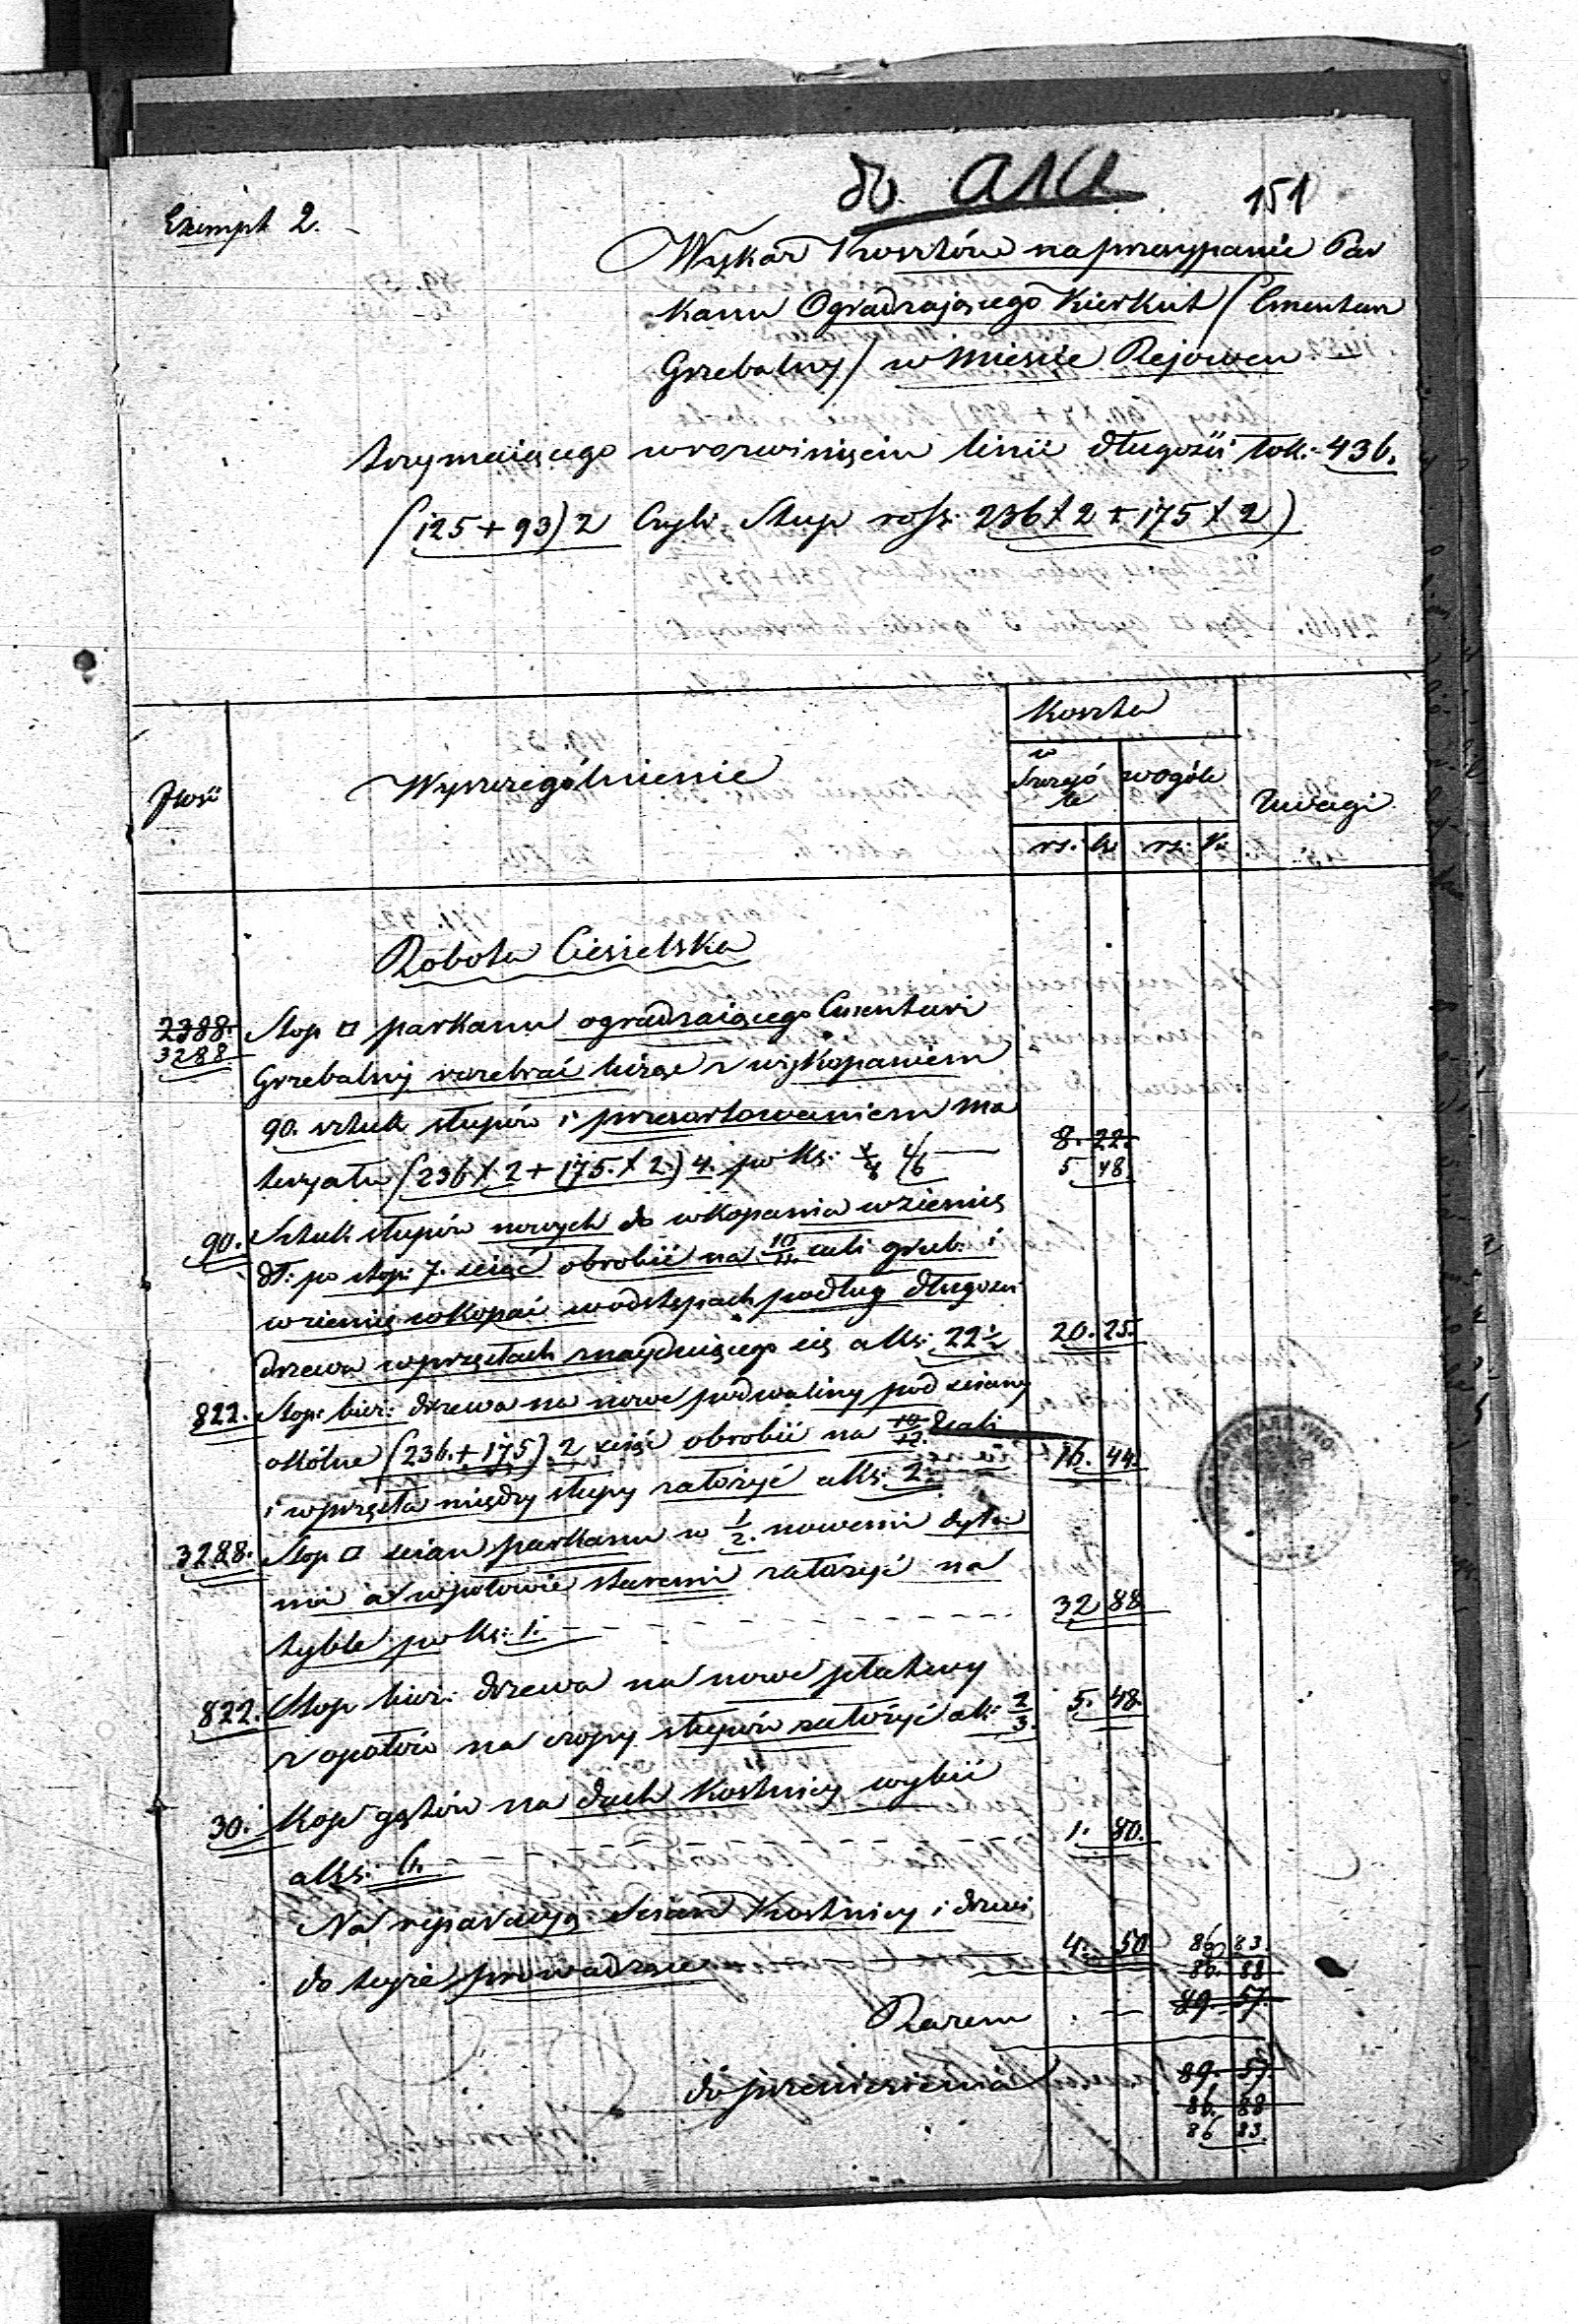 do akt
151
Exempl 2.
Wykaz Kosztów na przesypanie Par
kanu Ogradzającego Kierkut (Cmentarz
Grzebalny) w Mieście Rejowcu
trzymaiącego w rozwinięciu linii długości łok: 436.
(125 + 93) 2 Czyli stup rosz: 236 X 2 + 175 X 2)
Koszta
Ilość
Wyszczególnienie
w Szczegó le
wogóle
Uwagi
rs: k rs: k
Robota Ciesielska
2388.
3288
Stop □ parkanu ogradzaiącego Cmentarz
Grzebalny rozebrać licząc z wykopaniem
90. sztuk słupów i przesortowaniem ma
8. 22.
teryału (236 X 2 + 175. X 2.) 4. po ks: 1/6
5 48.
90. Sztuk słupów nowych do wkopania w ziemię
dł: po stop: 7. licząc obrobić na cali grub: i
w ziemię wkopać w odstępach podług długości
drzewa w przęsłach znayduiącego się a ks: 22½ 20. 25.
822. Stop: bier: drzewa na nowe podwaliny pod ściany
okólne (236. + 175) 2 licząc obrobić na 10/12 cali
i w przęsła między słupy założyć a ks: 2. 16. 44.
3288. Stop □ ścian parkanu w 1/2. nowemi dyla
mi a w połowie staremi założyć na
tyble po ks: 1. 32 88
822. Stop bier: drzewa na nowe płatwy
z opołów na czopy słupów założyć a k: 2/3. 5. 48.
30. Kop gątów na dach Kostnicy wybić
a ks: 6. 1. 80.
Na reparacyą Ścian Kostnicy i drzwi
do teyże prowadzące 4. 50 86 83.
86. 88
Razem 89. 57.
do przeniesienia 89. 57.
86. 88
86 83.